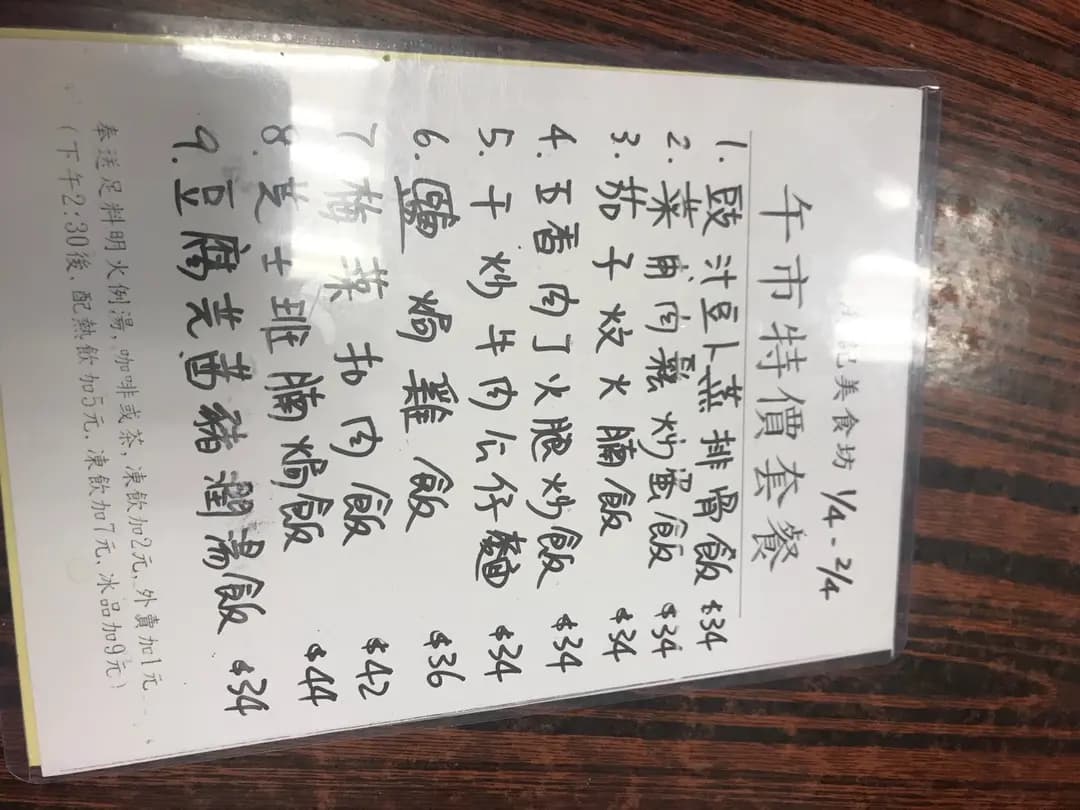 記美食坊 1/4 - 2/4
午市特價套餐
1. 豉汁豆卜蒸排骨飯 $34
2. 菜甫肉鬆炒蛋飯 $34
3. 茄子炆火腩飯 $34
4. 五香肉丁火腿炒飯 $34
5. 干炒牛肉公仔麵 $34
6. 鹽焗雞飯 $36
7. 梅菜扣肉飯 $42
8. 芝士班腩焗飯 $44
9. 豆腐芫茜豬潤湯飯 $34
奉送足料明火例湯,咖啡或茶,凍飲加2元,外賣加1元
(下午2:30後、配熱飲加5元、凍飲加7元、冰品加9元)